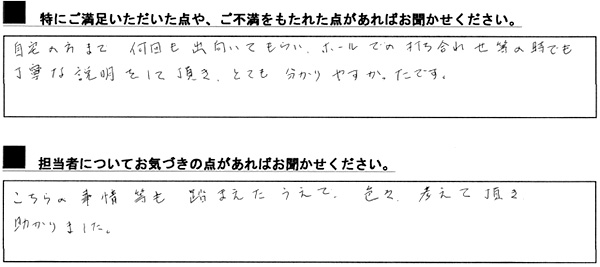 ■ 特にご満足いただいた点や、ご不満をもたれた点があればお聞かせください。
自宅の方まで 何回も 出向いてもらい、ホールでの打ち合わせ等の時でも
丁寧な説明をして頂き、とても 分かりやすかったです。
■ 担当者についてお気づきの点があればお聞かせください。
こちらの事情等も 踏まえたうえで、色々、考えて頂き
助かりました。